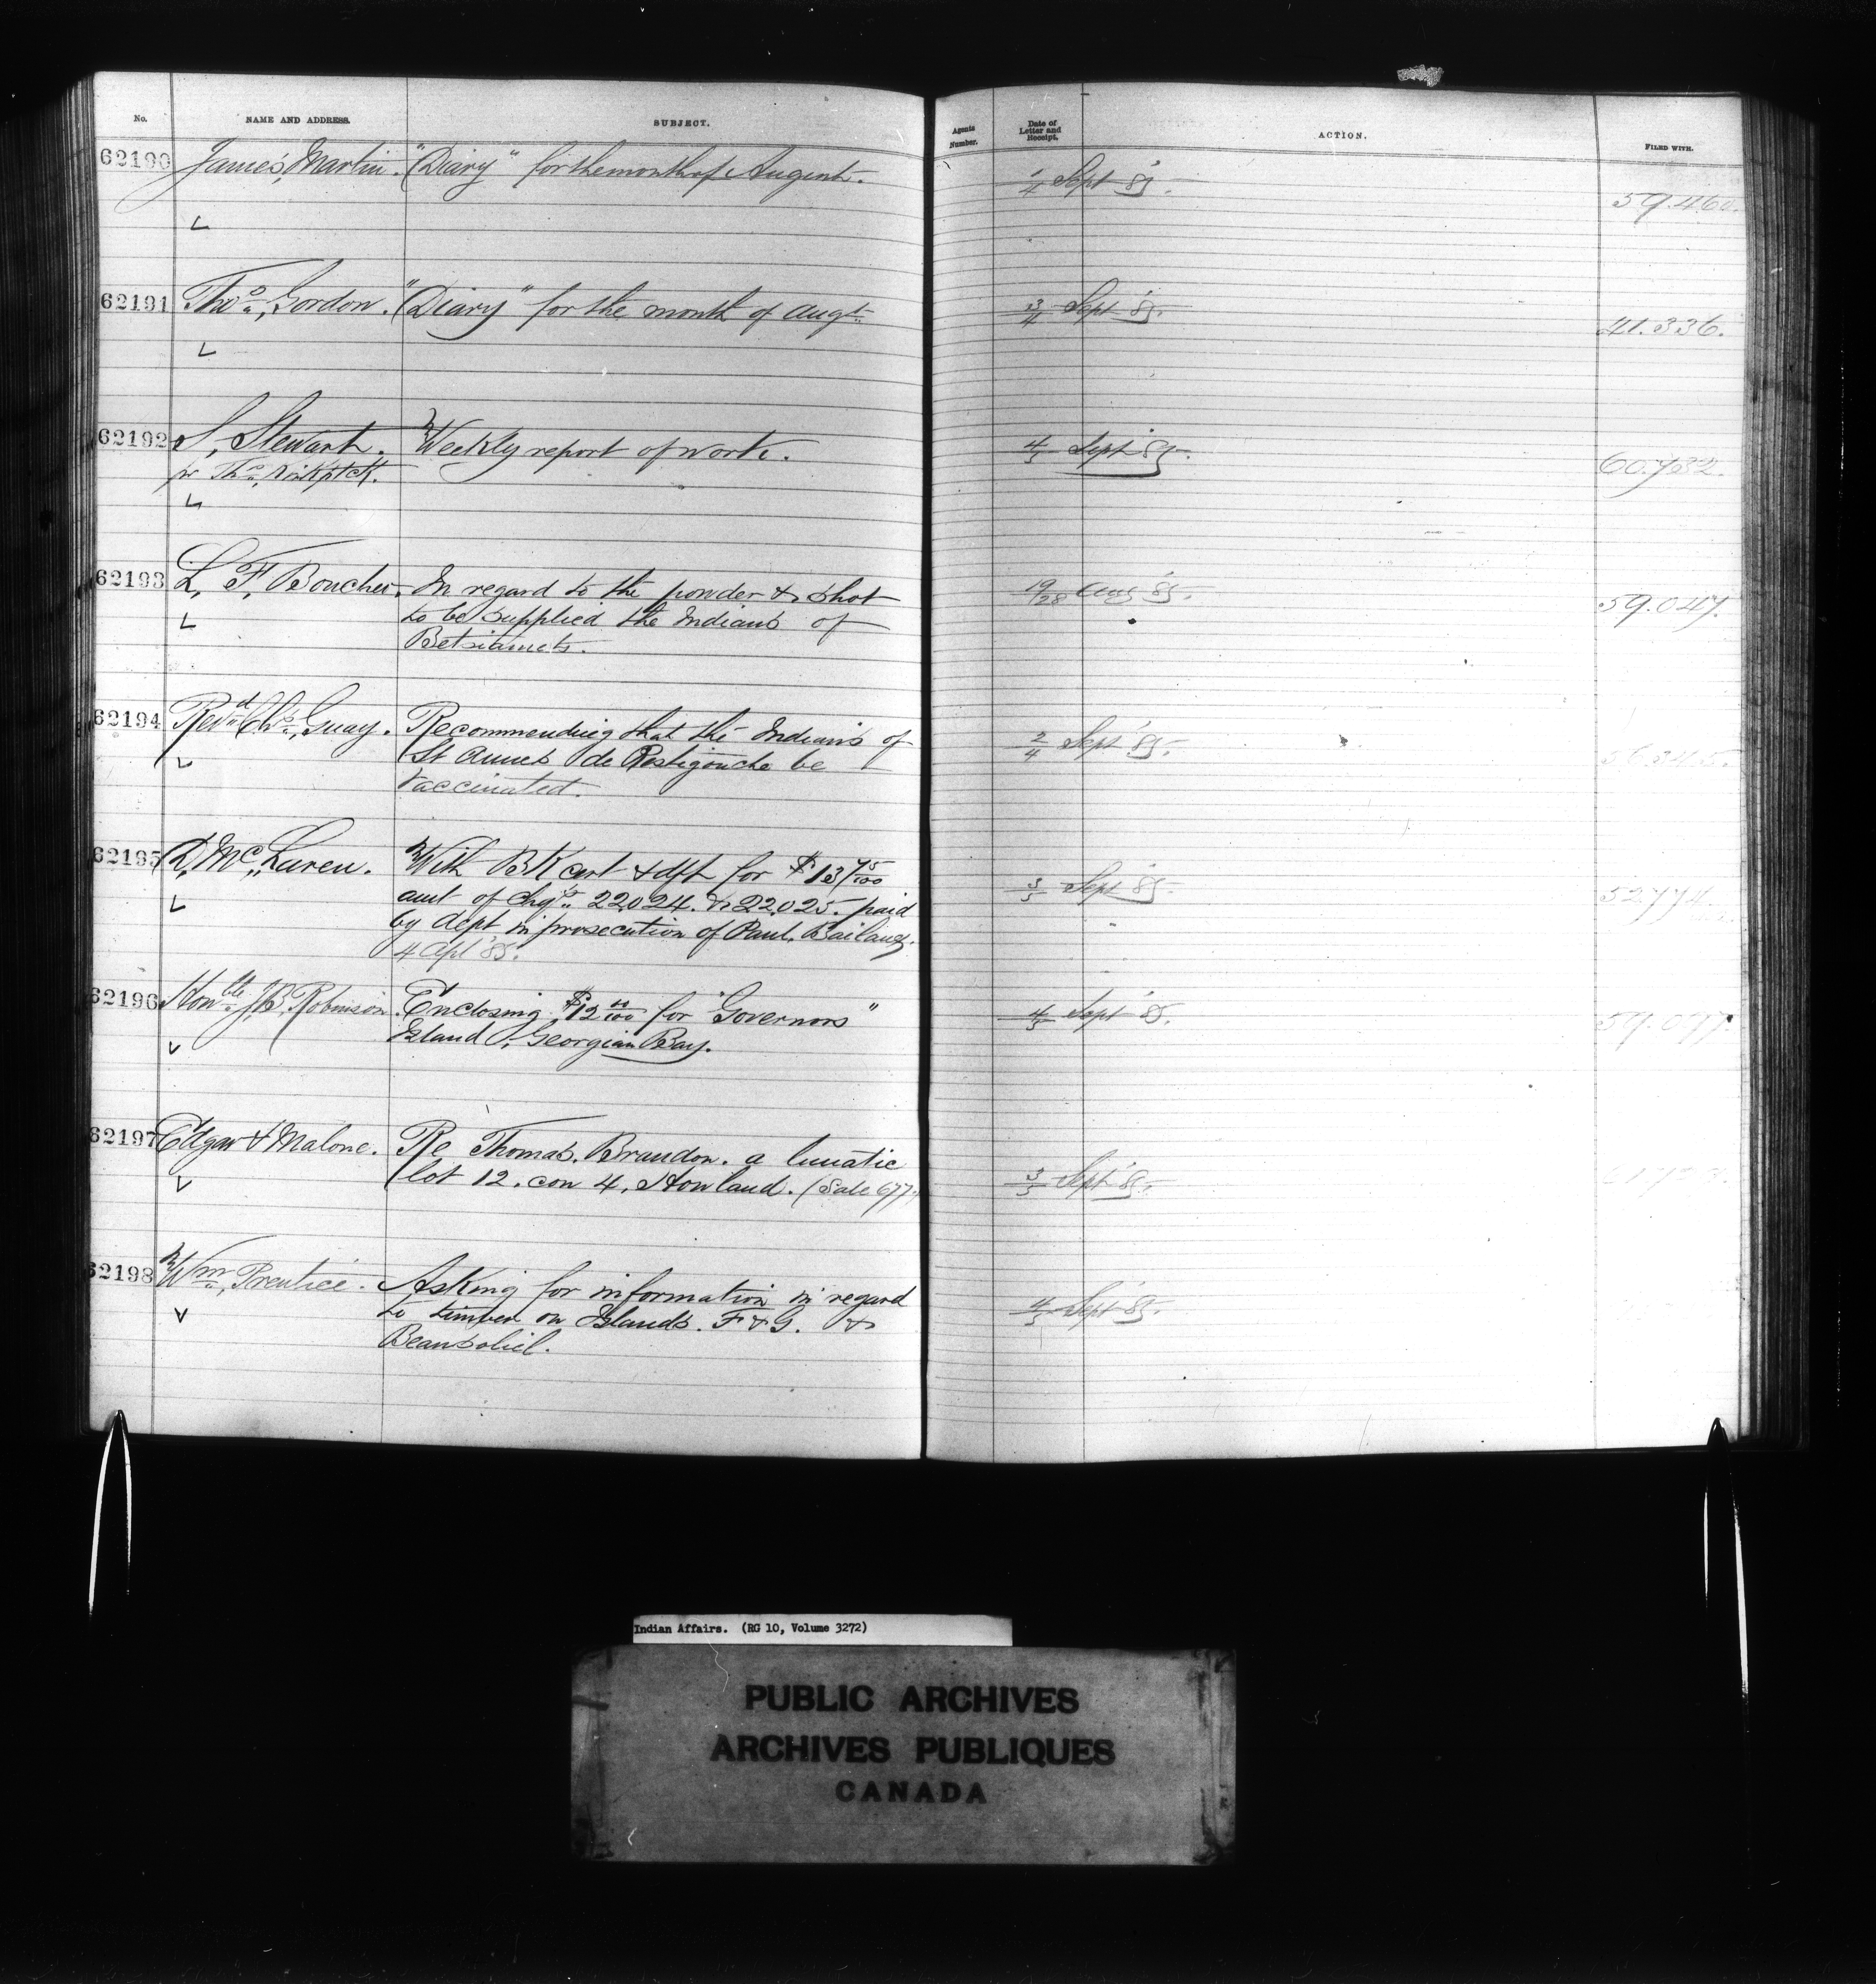 No. NAME AND ADDRESS. SUBJECT. Agents Number. Date of Letter and Receipt. ACTION. FILED WITH.
62190 James, Martin. "Diary" for the month of August. 1/4 Sept '85. 59.460.
62191 Thos., Gordon. "Diary" for the month of Augt. 3/4 Sept '85. 41.336.
62192 S, Stewart. Weekly report of work. 4/5 Sept '85. 60.732.
pr Thos,
62193 L, F, Boucher. In regard to the powder & shot 19/28 Aug '85. 59.047.
to be supplied the Indians of
Betsiamets.
62194 Revd Chs, Guay. Recommending that the Indians of 2/4 Sept '85. 56345.
St Annes de Restigouche be
vaccinated.
62195 D, McLaren. With BK cert & dft for $137 75/100 3/5 Sept '85. 52774.
amt of chqs 22024. & 22025. paid
by dept in prosecution of Paul,
4 Apl '85.
62196 Honble J,B, Robinson. Enclosing $12 00/100 for "Governors" 4/5 Sept '85. 59.077.
Island, Georgian Bay.
62197 Edgar & Malone. Re Thomas. Brandon. a lunatic 3/5 Sept '85.
lot 12. con 4, Howland. (Sale 677.)
62198 Wm, Prentice. Asking for information in regard 4/5 Sept '85.
to timber on Islands. F & G. &
Beausoliel.
Indian Affairs. (RG 10, Volume 3272)
PUBLIC ARCHIVES
ARCHIVES PUBLIQUES
CANADA